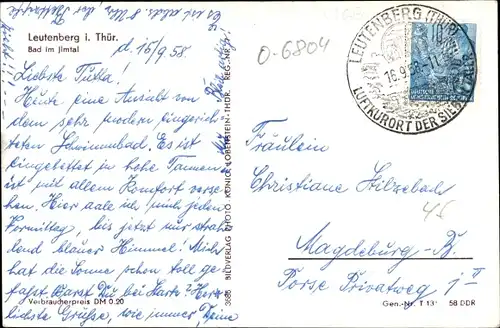 Leutenberg i. Thür.
Bad im Ilmtal
d. 16/9.58
Liebste Tutta!
Heute eine Ansicht von
dem sehr modern eingerich-
teten Schwimmbad. Es ist
eingebettet in hohe Tannen
ist mit allem Komfort verse-
hen. Hier aale ich mich jeden
Vormittag, bis jetzt nur strah-
lend blauer Himmel! Mich
hat die Sonne schon toll ge-
fasst. Warst Du bei Harta? Herz-
lichste Grüße, wie immer Deine
Verbraucherpreis DM 0.20
BILDVERLAG PHOTO KÖNIG LOBENSTEIN-THÜR. REG.-NR.
O-6804
LEUTENBERG (THÜR)
16.9.58-11
LUFTKURORT DER
Fräulein
Christiane Hilzebad
45
Magdeburg-B.
Porse Privatweg 1 II
Gen.-Nr. T 13 58 DDR